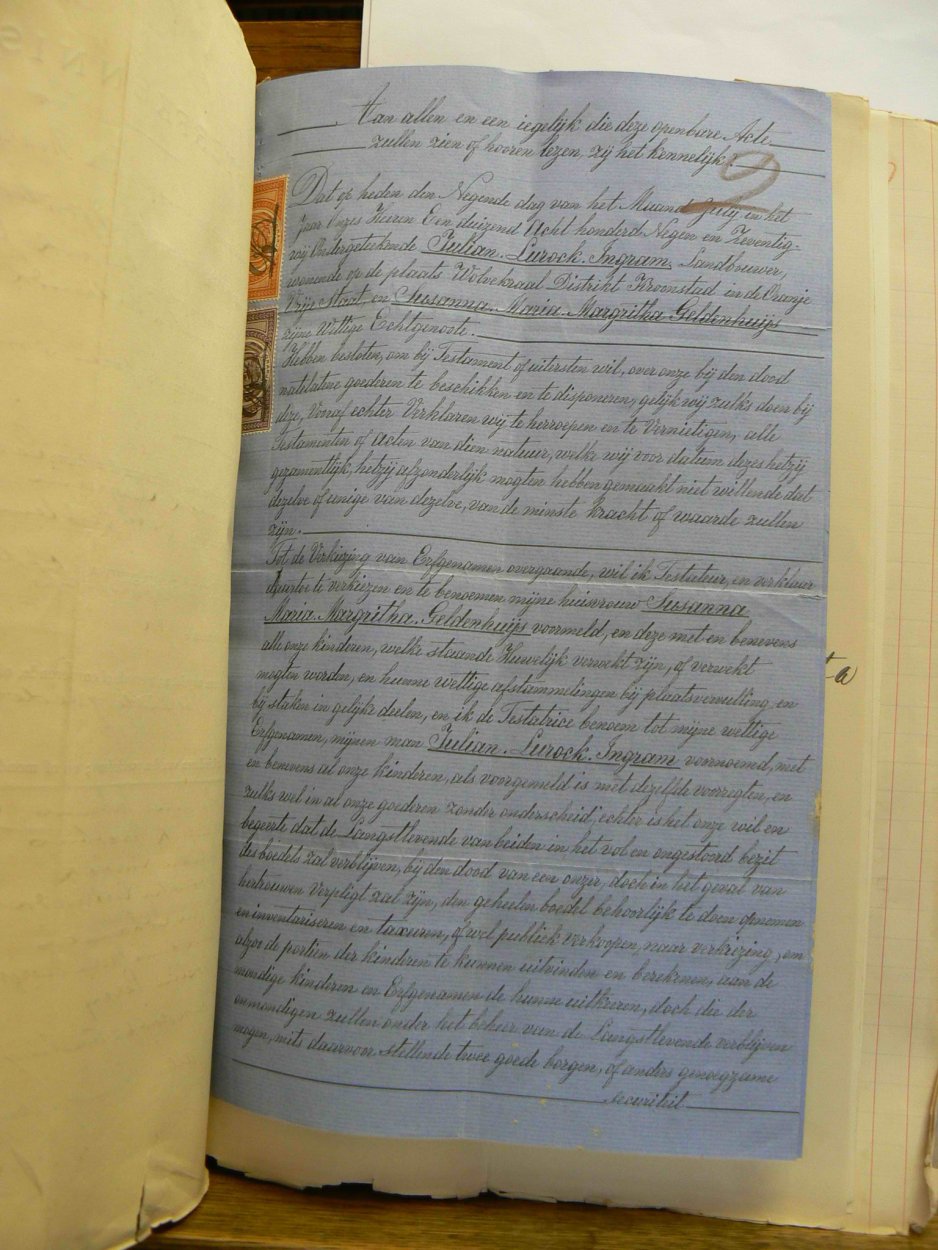 Aan allen en een iegelijk die deze openbare Acte
zullen zien of hooren lezen, zij het kennelijk:
2
Dat op heden den Negende dag van het Maand July in het
Jaar Onzes Heeren Een duizend Acht honderd Negen en Zeventig
wij Ondergeteekende Julian Lurock Ingram, Landbouwer,
wonende op de plaats Wolvekraal Distrikt Kroonstad in de Oranje
Vrij Staat en Susanna Maria Margritha Geldenhuijs
zijne Wettige Echtgenoote.
Hebben besloten, om bij Testament of uitersten wil, over onze bij den dood
natelatene goederen te beschikken en te disponeren, gelijk wij zulks doen bij
deze, Vooraf echter Verklaren wij te herroepen en te Vernietigen, alle
Testamenten of acten van dien natuur, welke wij voor datum dezes hetzij
gezamentlijk, hetzij afzonderlijk mogten hebben gemaakt niet willende dat
dezelve of eenige van dezelve, van de minste kracht of waarde zullen
zijn.
Tot de Verkiezing van Erfgenamen overgaande, wil ik Testateur, en verklaar
daartoe te verkiezen en te benoemen mijne huisvrouw Susanna
Maria Margritha Geldenhuijs voormeld, en deze met en benevens
alle onze kinderen, welke staande Huwelijk verwekt zijn, of verwekt
mogten worden, en hunne wettige afstammelingen bij plaatsvervulling, en
bij staken in gelijke deelen, en ik de Testatrice benoem tot mijne wettige
Erfgenamen, mijnen man Julian Lurock Ingram voornoemd, met
en benevens al onze kinderen, als voorgemeld is met dezelfde voorregten, en
zulks wel in al onze goederen zonder onderscheid, echter is het onze wil en
begeerte dat de Langstlevende van beiden in het vol en ongestoord bezit
des boedels zal verblijven, bij den dood van een onzer, doch in het geval van
hertrouwen Verpligt zal zijn, den geheelen boedel behoorlijk te doen opnemen
en inventariseren en taxeren, of wel publiek verkoopen, naar verkiezing, om
alzoo de portien der kinderen te kunnen uitvinden en berekenen, aan de
mondige kinderen en Erfgenamen de hunne uitkeeren, doch die der
onmondigen zullen onder het beheer van de Langstlevende verblijven
mogen, mits daarvoor stellende twee goede borgen, of anders genoegzame
securiteit